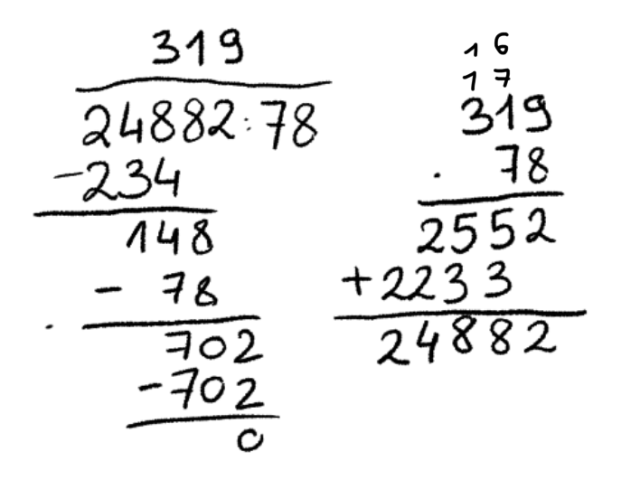 319
24882:78
-234
148
- 78
702
-702
0
1 6
1 7
319
. 78
2552
+2233
24882